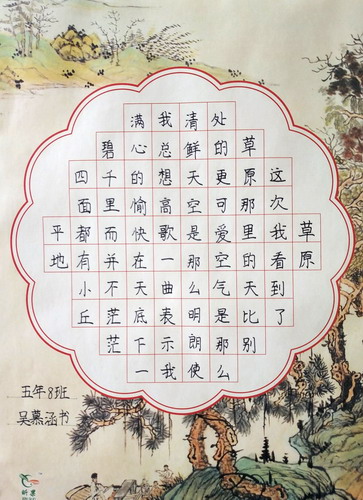 草原
这次我看到了
草原那里的天比别
处的更可爱空气是那么
清鲜天空是那么明朗使
我总想高歌一曲表示我
满心的愉快在天底下一
碧千里而并不茫茫
四面都有小丘
平地
五年8班
吴慕涵书